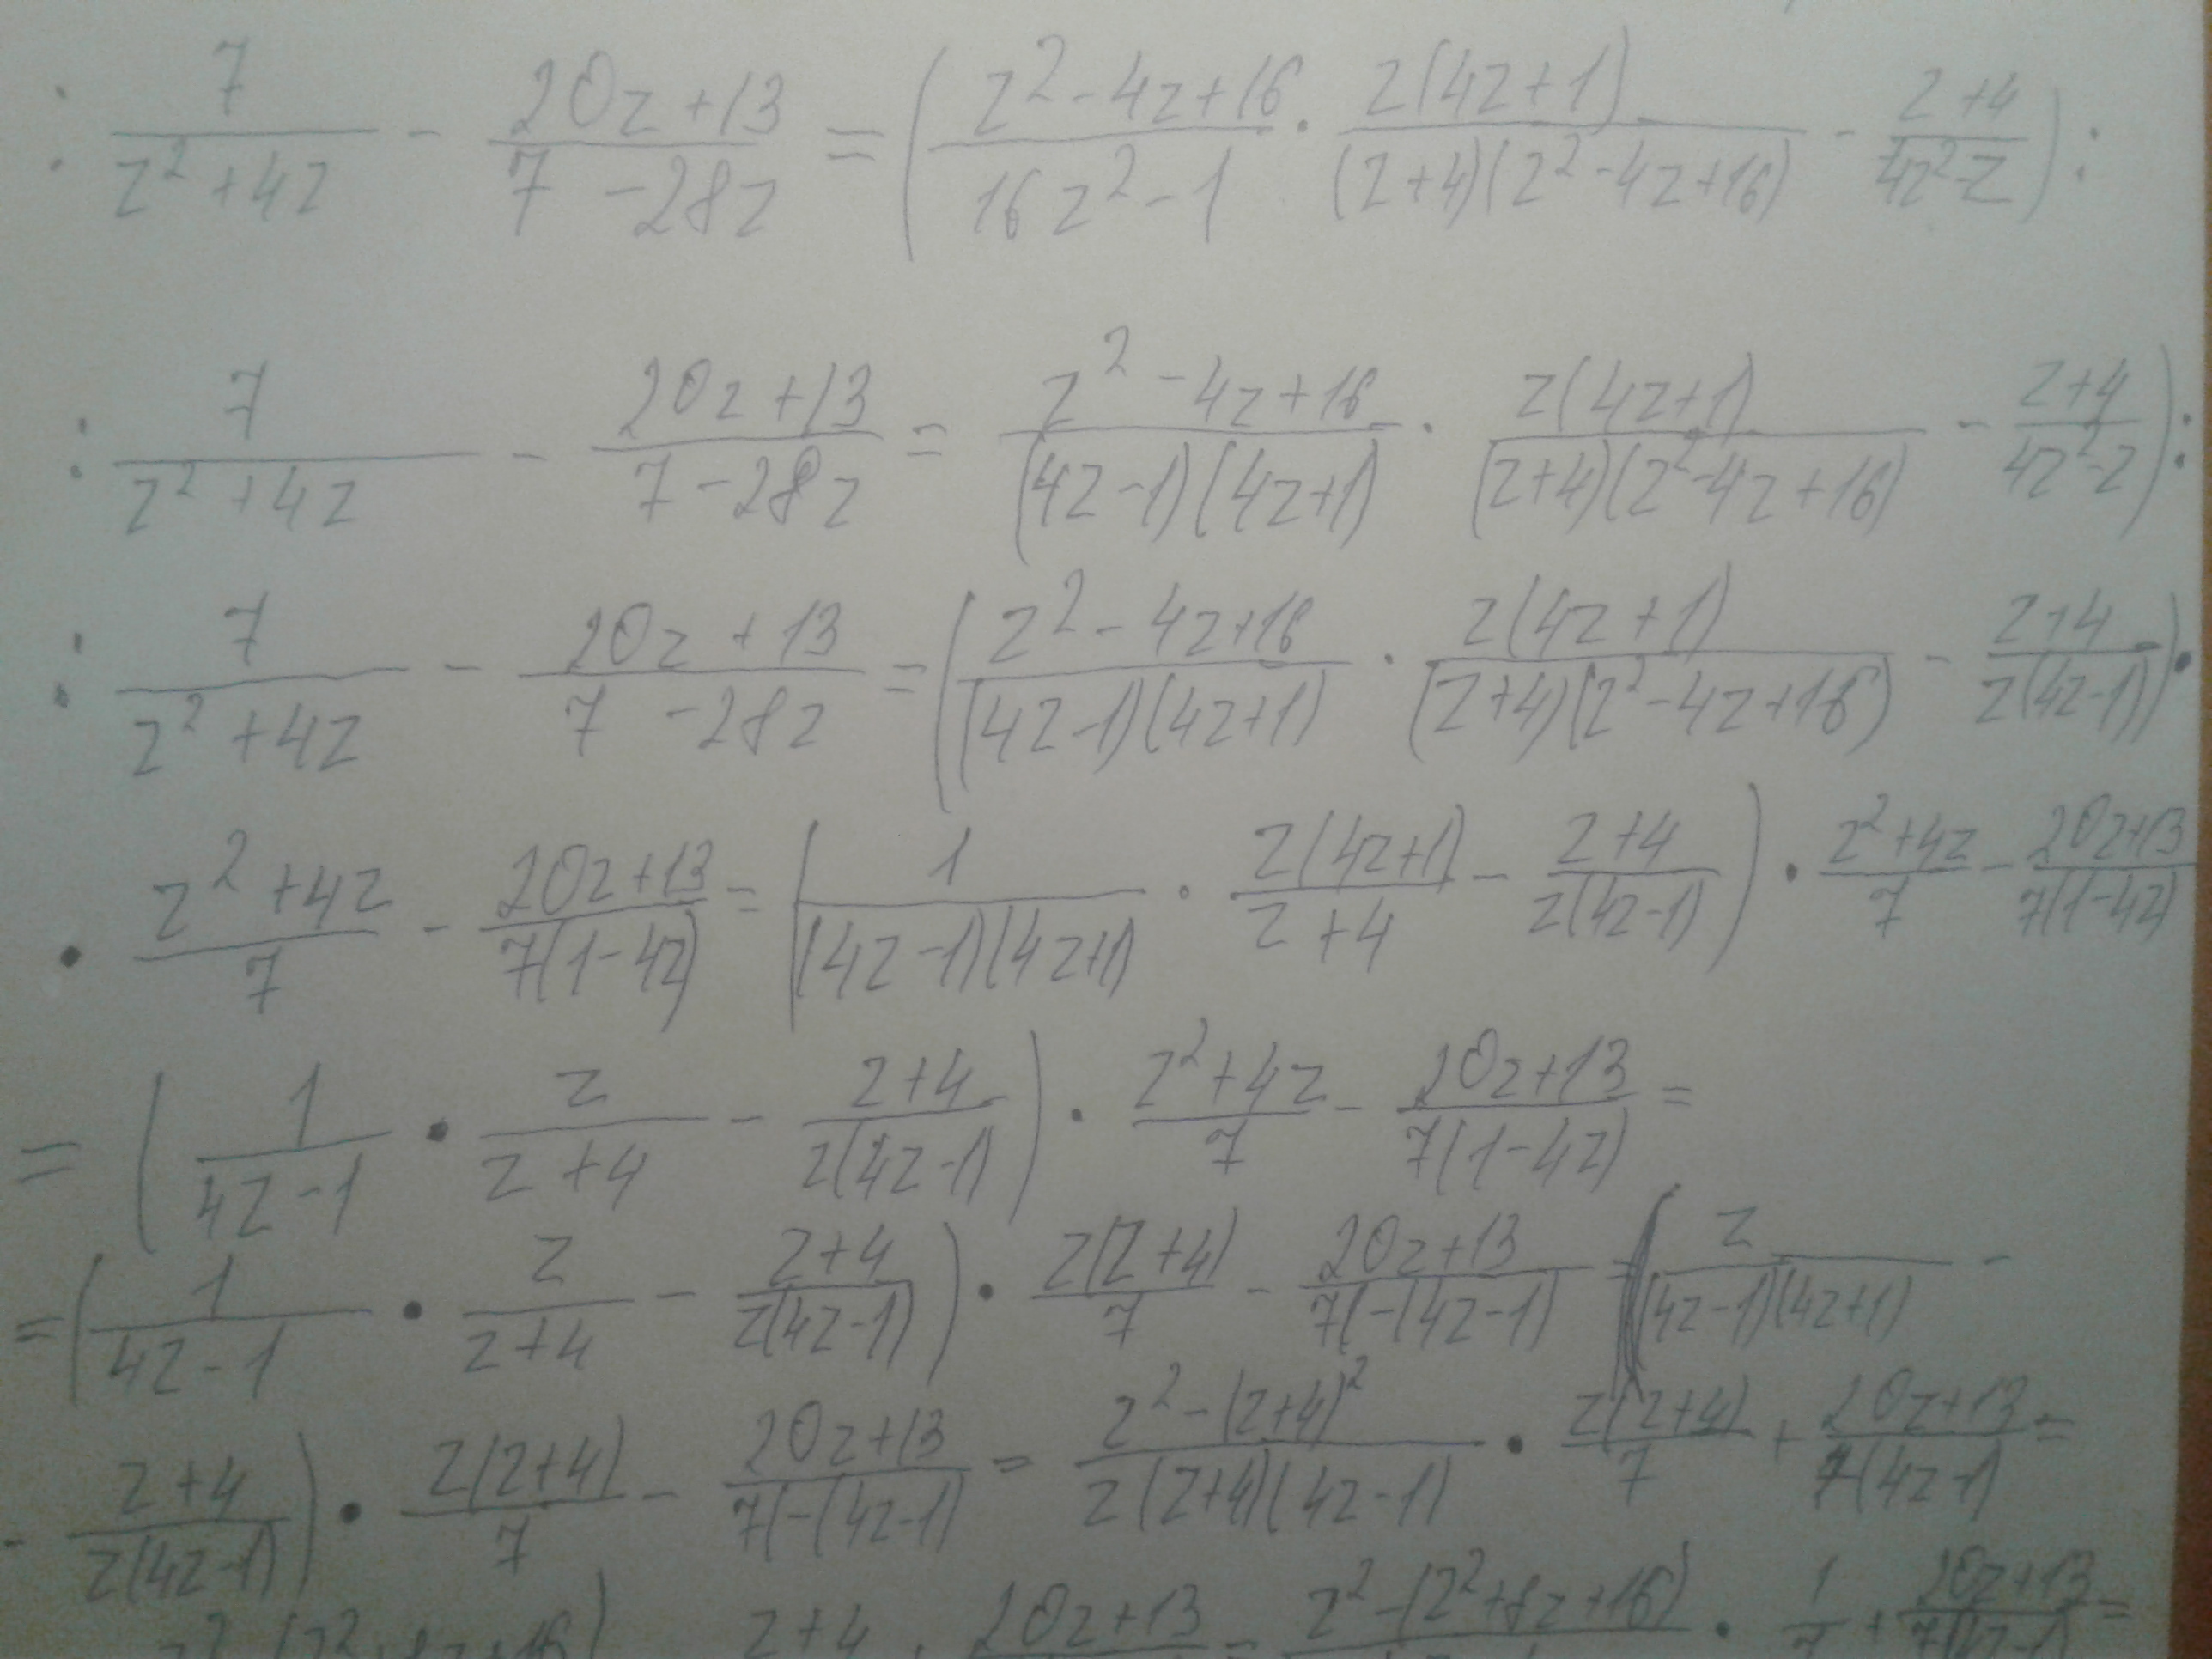 : 7/(z²+4z) - (20z+13)/(7-28z) = ( (z²-4z+16)/(16z²-1) · z(4z+1)/((z+4)(z²-4z+16)) - (z+4)/(4z²-z) ) :
: 7/(z²+4z) - (20z+13)/(7-28z) = (z²-4z+16)/((4z-1)(4z+1)) · z(4z+1)/((z+4)(z²-4z+16)) - (z+4)/(4z²-z) ) :
: 7/(z²+4z) - (20z+13)/(7-28z) = ( (z²-4z+16)/((4z-1)(4z+1)) · z(4z+1)/((z+4)(z²-4z+16)) - (z+4)/(z(4z-1)) ) ·
· (z²+4z)/7 - (20z+13)/(7(1-4z)) = ( 1/((4z-1)(4z+1)) · z(4z+1)/(z+4) - (z+4)/(z(4z-1)) ) · (z²+4z)/7 - (20z+13)/(7(1-4z))
= ( 1/(4z-1) · z/(z+4) - (z+4)/(z(4z-1)) ) · (z²+4z)/7 - (20z+13)/(7(1-4z)) =
= ( 1/(4z-1) · z/(z+4) - (z+4)/(z(4z-1)) ) · z(z+4)/7 - (20z+13)/(7(-(4z-1)) = ( z/((4z-1)(4z+1)) -
- (z+4)/(z(4z-1)) ) · z(z+4)/7 - (20z+13)/(7(-(4z-1)) = (z²-(z+4)²)/(z(z+4)(4z-1)) · z(z+4)/7 + (20z+13)/(7(4z-1)) =
z+4 20z+13 = z²-(z²+8z+16) · 1/7 + (20z+13)/(7(4z-1)) =